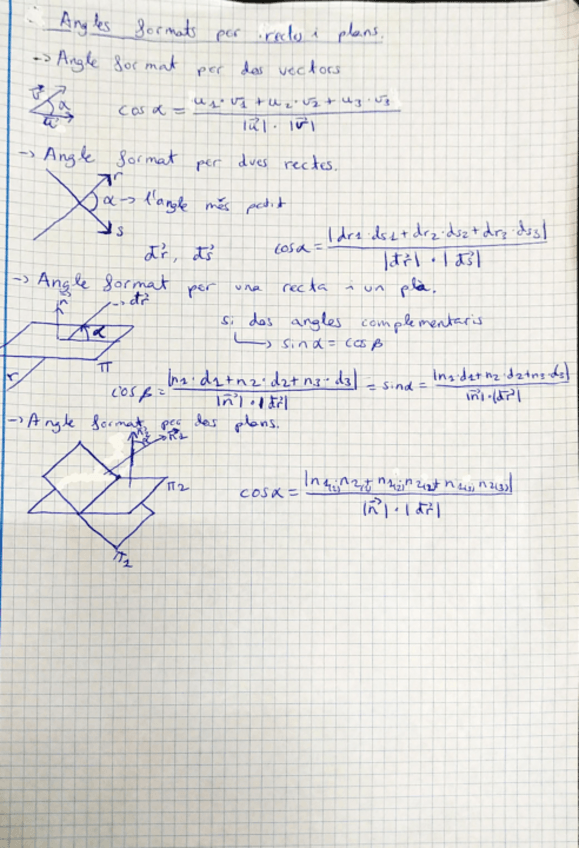 Angles formats per rectes i plans.
-> Angle format per dos vectors
v⃗ α u⃗
cos α = (u1·v1 + u2·v2 + u3·v3) / (|u⃗| · |v⃗|)
-> Angle format per dues rectes.
r
α -> l'angle més petit
s
d⃗r, d⃗s
cos α = |dr1·ds1 + dr2·ds2 + dr3·ds3| / (|d⃗r| · |d⃗s|)
-> Angle format per una recta i un pla.
n⃗ d⃗r α π r
si dos angles complementaris
↳ sin α = cos β
cos β = |n1·d1 + n2·d2 + n3·d3| / (|n⃗| · |d⃗r|) = sin α = |n1·d1 + n2·d2 + n3·d3| / (|n⃗| · |d⃗r|)
-> Angle format per dos plans.
n⃗2 α n⃗1
π2
cos α = |n1(1) n2(1) + n1(2) n2(2) + n1(3) n2(3)| / (|n⃗| · |d⃗r|)
π1